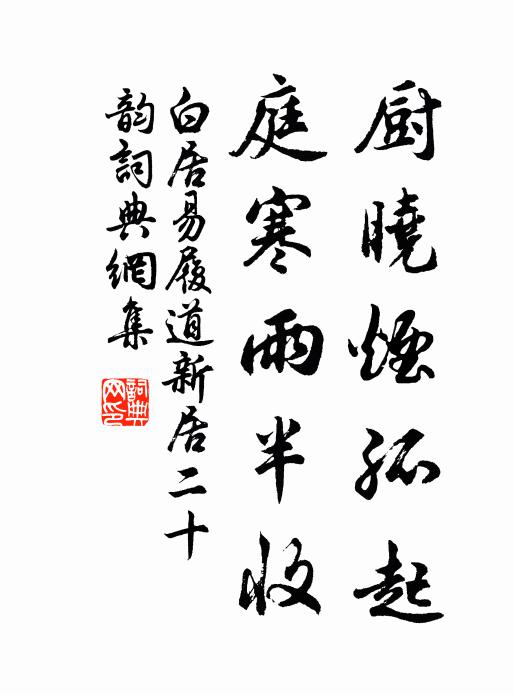 厨曉煙孤起
庭寒雨半收
白居易履道新居二十
韵詞典網集
詞典网印